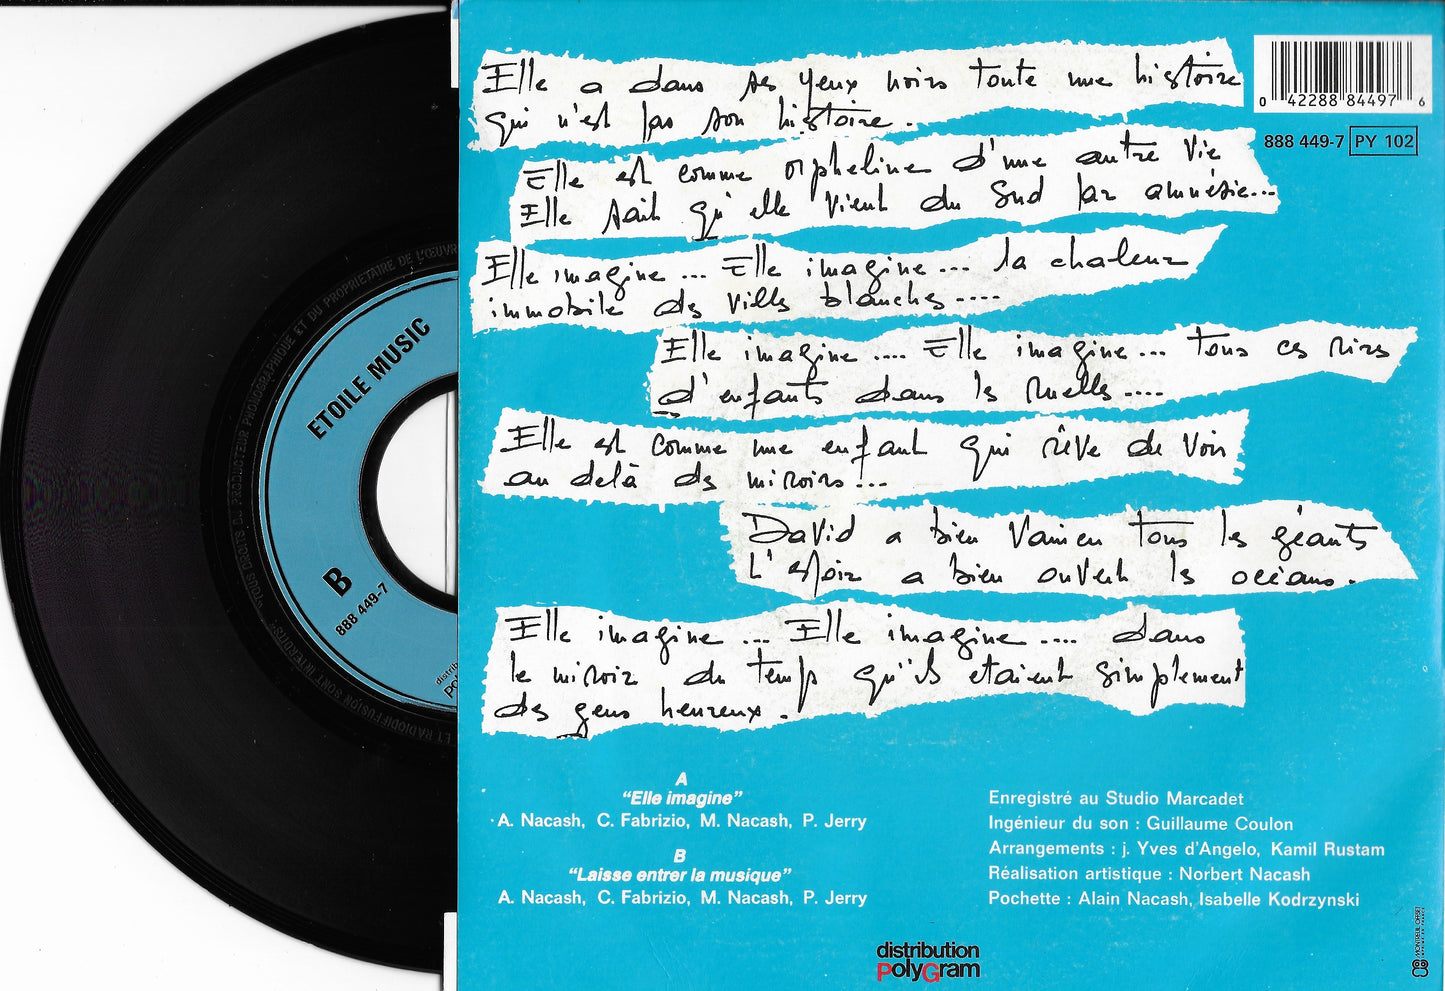 Elle a dans ses yeux noirs toute une histoire
qui n'est pas son histoire.
Elle est comme orpheline d'une autre vie
Elle sait qu'elle vient du Sud par amnésie...
Elle imagine... Elle imagine... la chaleur
immobile des villes blanches....
Elle imagine.... Elle imagine... tous ces rires
d'enfants dans les ruelles....
Elle est comme une enfant qui rêve de voir
au delà des miroirs...
David a bien vaincu tous les géants
L'espoir a bien ouvert les océans.
Elle imagine... Elle imagine.... dans
le miroir du temps qu'ils etaient simplement
des gens heureux.
0 42288 84497 6
888 449-7 PY 102
A
"Elle imagine"
A. Nacash, C. Fabrizio, M. Nacash, P. Jerry
B
"Laisse entrer la musique"
A. Nacash, C. Fabrizio, M. Nacash, P. Jerry
Enregistré au Studio Marcadet
Ingénieur du son : Guillaume Coulon
Arrangements : j. Yves d'Angelo, Kamil Rustam
Réalisation artistique : Norbert Nacash
Pochette : Alain Nacash, Isabelle Kodrzynski
distribution
PolyGram
MONTREUIL OFFSET
ETOILE MUSIC
B
888 449-7
distrib
Po
TOUS DROITS DU PRODUCTEUR PHONOGRAPHIQUE ET DU PROPRIETAIRE DE L'ŒUVR
ET RADIODIFFUSION SONT INTERDITS